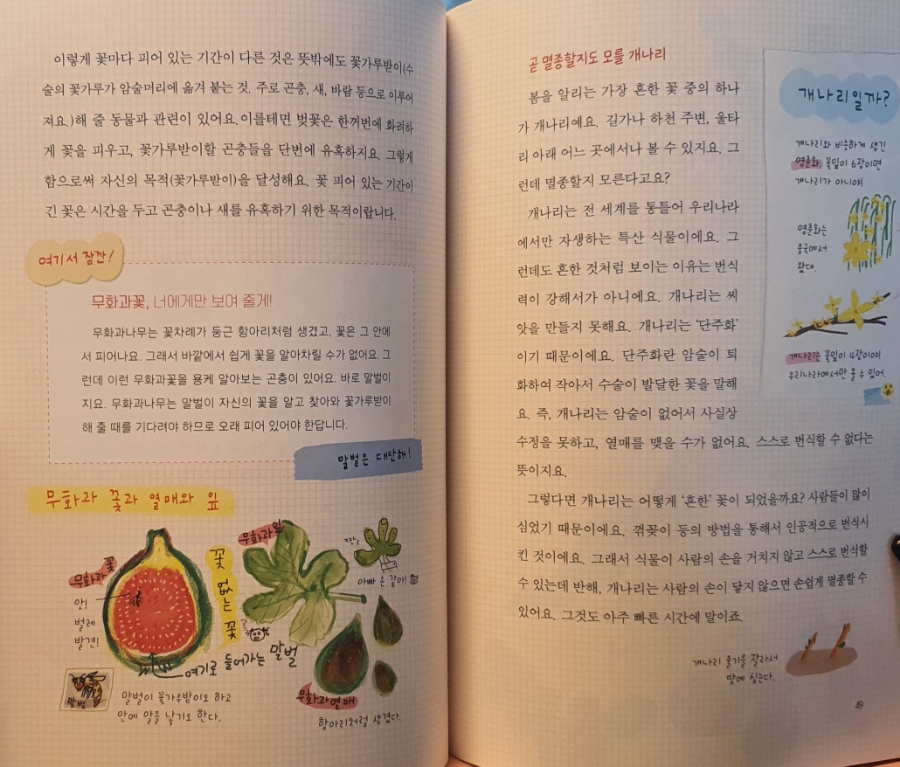 이렇게 꽃마다 피어 있는 기간이 다른 것은 뜻밖에도 꽃가루받이(수
술의 꽃가루가 암술머리에 옮겨 붙는 것. 주로 곤충, 새, 바람 등으로 이루어
져요.)해 줄 동물과 관련이 있어요. 이를테면 벚꽃은 한꺼번에 화려하
게 꽃을 피우고, 꽃가루받이할 곤충들을 단번에 유혹하지요. 그렇게
함으로써 자신의 목적(꽃가루받이)을 달성해요. 꽃 피어 있는 기간이
긴 꽃은 시간을 두고 곤충이나 새를 유혹하기 위한 목적이랍니다.
여기서 잠깐!
무화과꽃, 너에게만 보여 줄게!
무화과나무는 꽃차례가 둥근 항아리처럼 생겼고, 꽃은 그 안에
서 피어나요. 그래서 바깥에서 쉽게 꽃을 알아차릴 수가 없어요. 그
런데 이런 무화과꽃을 용케 알아보는 곤충이 있어요. 바로 말벌이
지요. 무화과나무는 말벌이 자신의 꽃을 알고 찾아와 꽃가루받이
해 줄 때를 기다려야 하므로 오래 피어 있어야 한답니다.
말벌은 대단해!
무화과 꽃과 열매와 잎
무화과 꽃
앗!
벌레
발견!
꽃 없는 꽃
무화과잎
아빠 손 같애
여기로 들어가는 말벌
말벌
말벌이 꽃가루받이도 하고
안에 알을 낳기도 한다.
무화과열매
항아리처럼 생겼다.
곧 멸종할지도 모를 개나리
봄을 알리는 가장 흔한 꽃 중의 하나
가 개나리예요. 길가나 하천 주변, 울타
리 아래 어느 곳에서나 볼 수 있지요. 그
런데 멸종할지 모른다고요?
개나리는 전 세계를 통틀어 우리나라
에서만 자생하는 특산 식물이에요. 그
런데도 흔한 것처럼 보이는 이유는 번식
력이 강해서가 아니에요. 개나리는 씨
앗을 만들지 못해요. 개나리는 ‘단주화’
이기 때문이에요. 단주화란 암술이 퇴
화하여 작아서 수술이 발달한 꽃을 말해
요. 즉, 개나리는 암술이 없어서 사실상
수정을 못하고, 열매를 맺을 수가 없어요. 스스로 번식할 수 없다는
뜻이지요.
그렇다면 개나리는 어떻게 ‘흔한’ 꽃이 되었을까요? 사람들이 많이
심었기 때문이에요. 꺾꽂이 등의 방법을 통해서 인공적으로 번식시
킨 것이에요. 그래서 식물이 사람의 손을 거치지 않고 스스로 번식할
수 있는데 반해, 개나리는 사람의 손이 닿지 않으면 손쉽게 멸종할 수
있어요. 그것도 아주 빠른 시간에 말이죠.
개나리일까?
개나리와 비슷하게 생긴
영춘화. 꽃잎이 6장이면
개나리가 아니야!
영춘화는
중국에서
왔대.
개나리는 꽃잎이 4장이야!
우리나라에서만 볼 수 있어.
개나리 줄기를 잘라서
땅에 심는다.
49